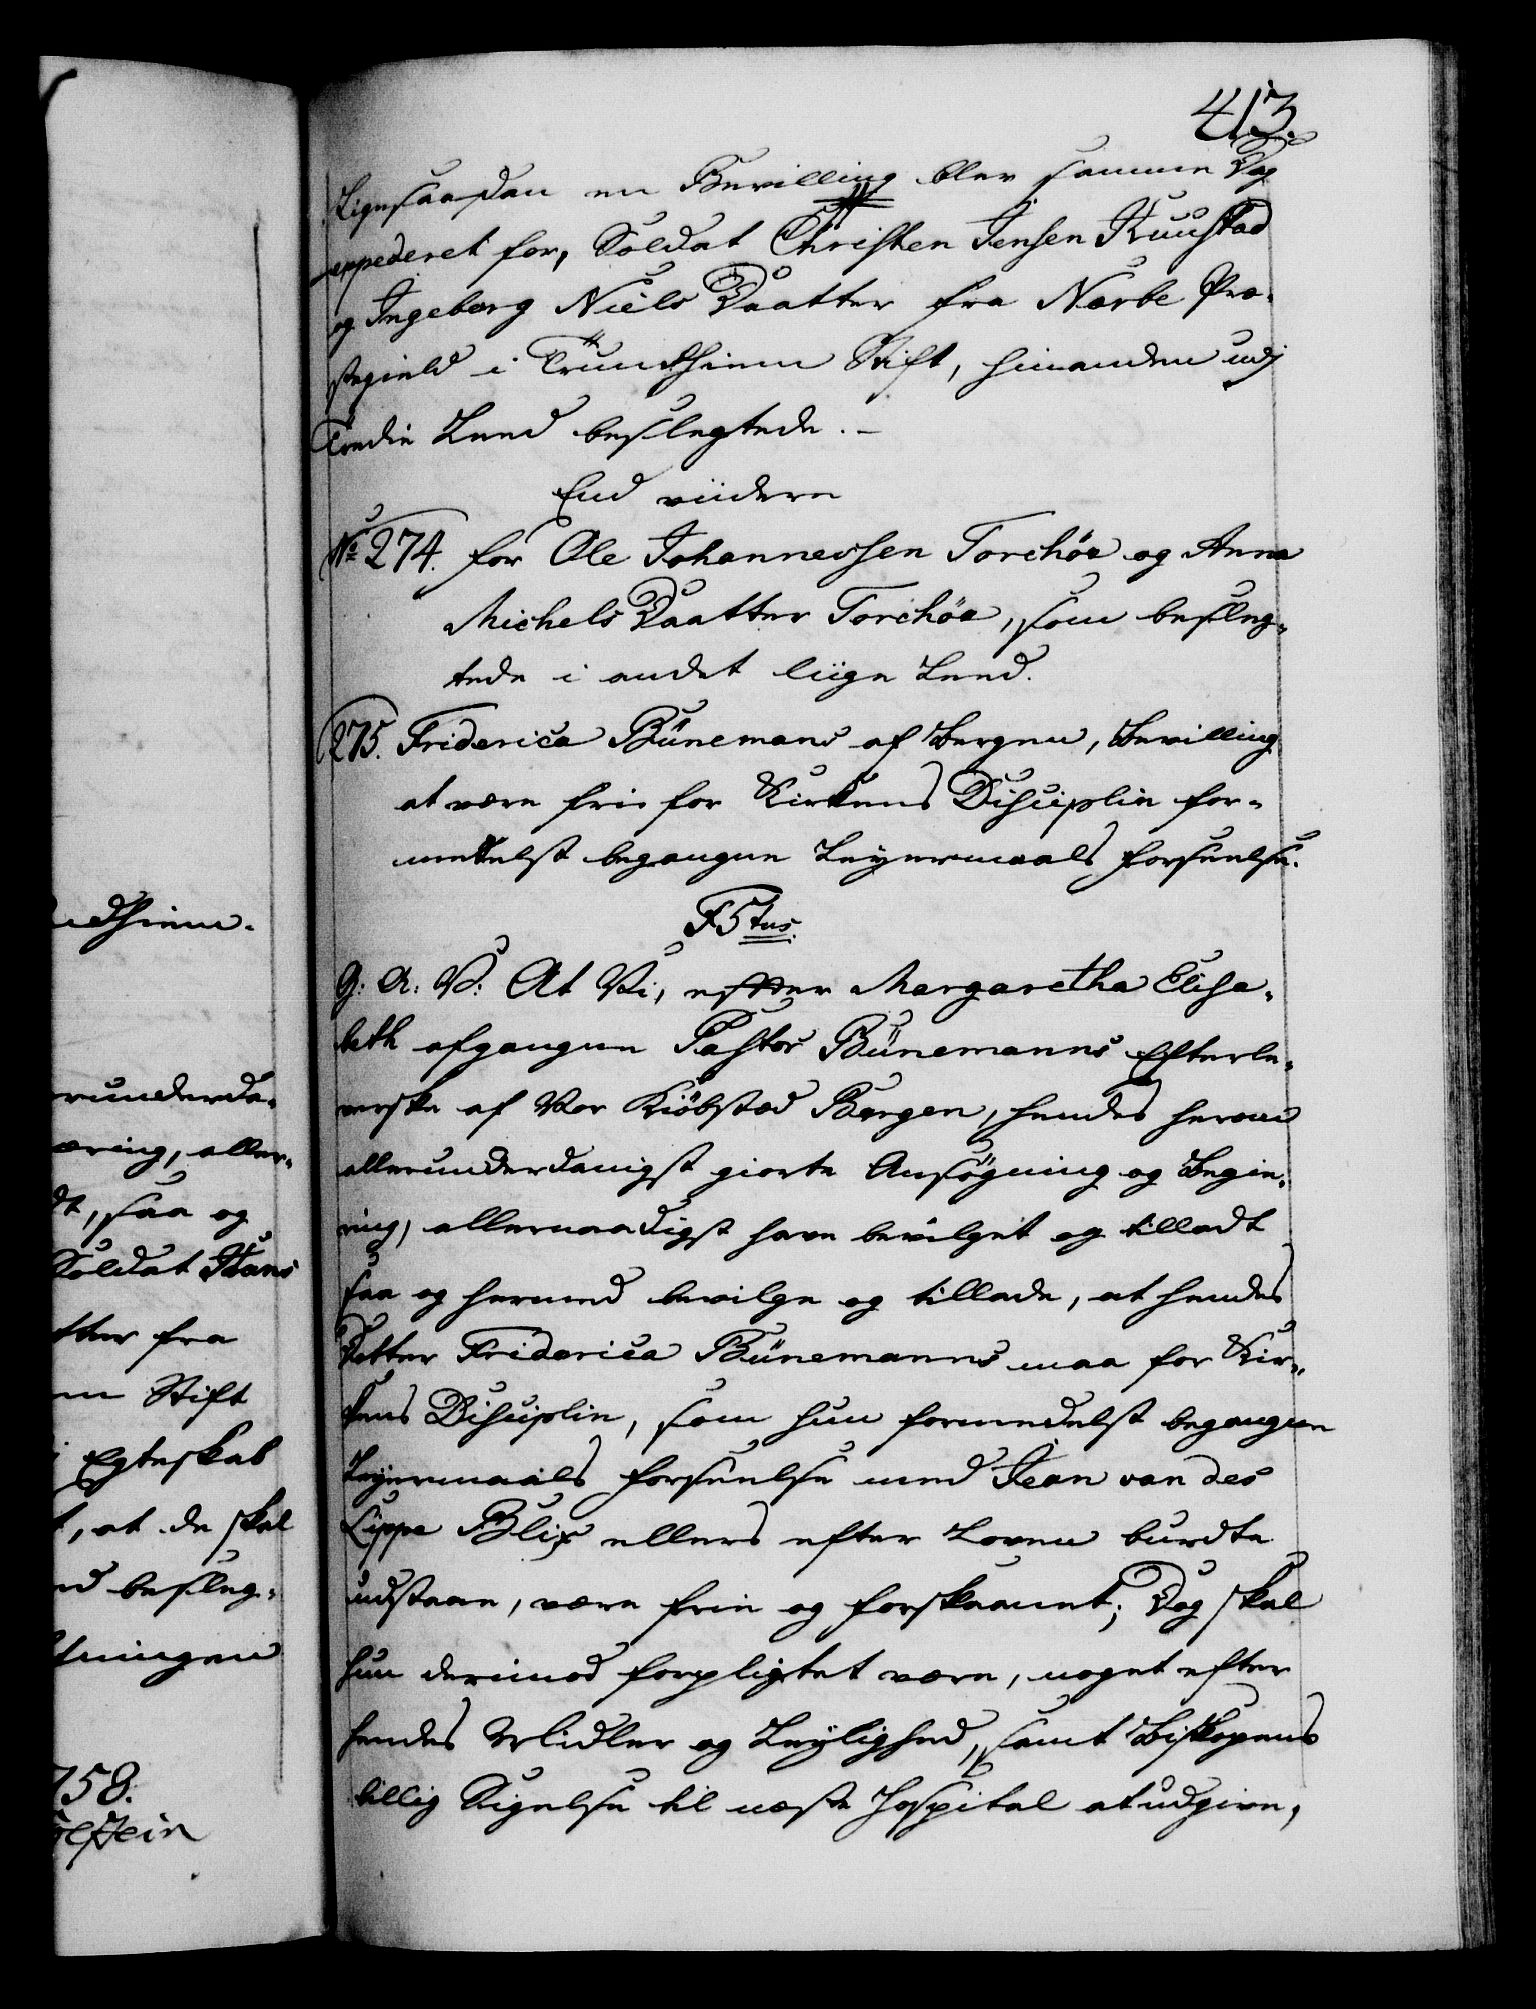 413.
Ligesaadan en Bevilling blev samme Dag
expederet for, Soldat Christen Jensen Kuustad
og Ingeborg Niels Daatter fra Nærbe Præ-
stegield i Trundhiem Stift, hinanden udj
Tredie Leed beslegtede. -
End viidere
No 274. for Ole Johannessen Torehöe og Anna
Michels Daatter Torehöe, som besleg-
tede i andet liige Leed.
275. Friderica Bünemans af Bergen, Bevilling
at være frie for Kirkens Disciplin for-
medelst begangne Leyermaals forseelse.
F5tus.
G: A: V: At Vi, efter Margaretha Elisa-
beth afgangne Pastor Bünemanns Efterle-
verske af Vor Kiöbstæd Bergen, hendes herom
allerunderdanigst giorte Ansögning og Begie-
ring, allernaadigst have bevilget og tilladt
saa og hermed bevilge og tillade, at hendes
Datter Friderica Bünemanns maa for Kir-
kens Disciplin, som hun formedelst begangne
Leyermaals forseelse med Jean van des
Lippe Blix ellers efter Loven burdte
udstaae, være frie og forskaanet; Dog skal
hun derimod forpligtet være, noget efter
hendes Midler og Leylighed, samt Biskopens
billig Sigelse til næste Hospital at udgive,
udhiem.
erunderda-
æring, aller-
dt, saa og
Soldat Hans
atter fra
m Stift
i Egteskab
t, at de skal
ed besleg-
tningen
758.
olstein